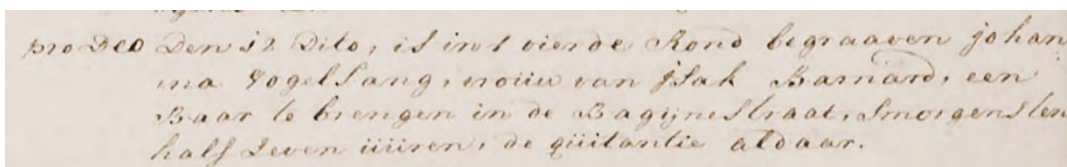 pro Deo Den 12 Dito, is int vierde Rond begraaven johan
ma Vogelsang, vrouw van jsak Barnard, een
Baar te brengen in de Bagijnestraat, Smorgens ten
half Seven üüüren, de qüitantie aldaar.